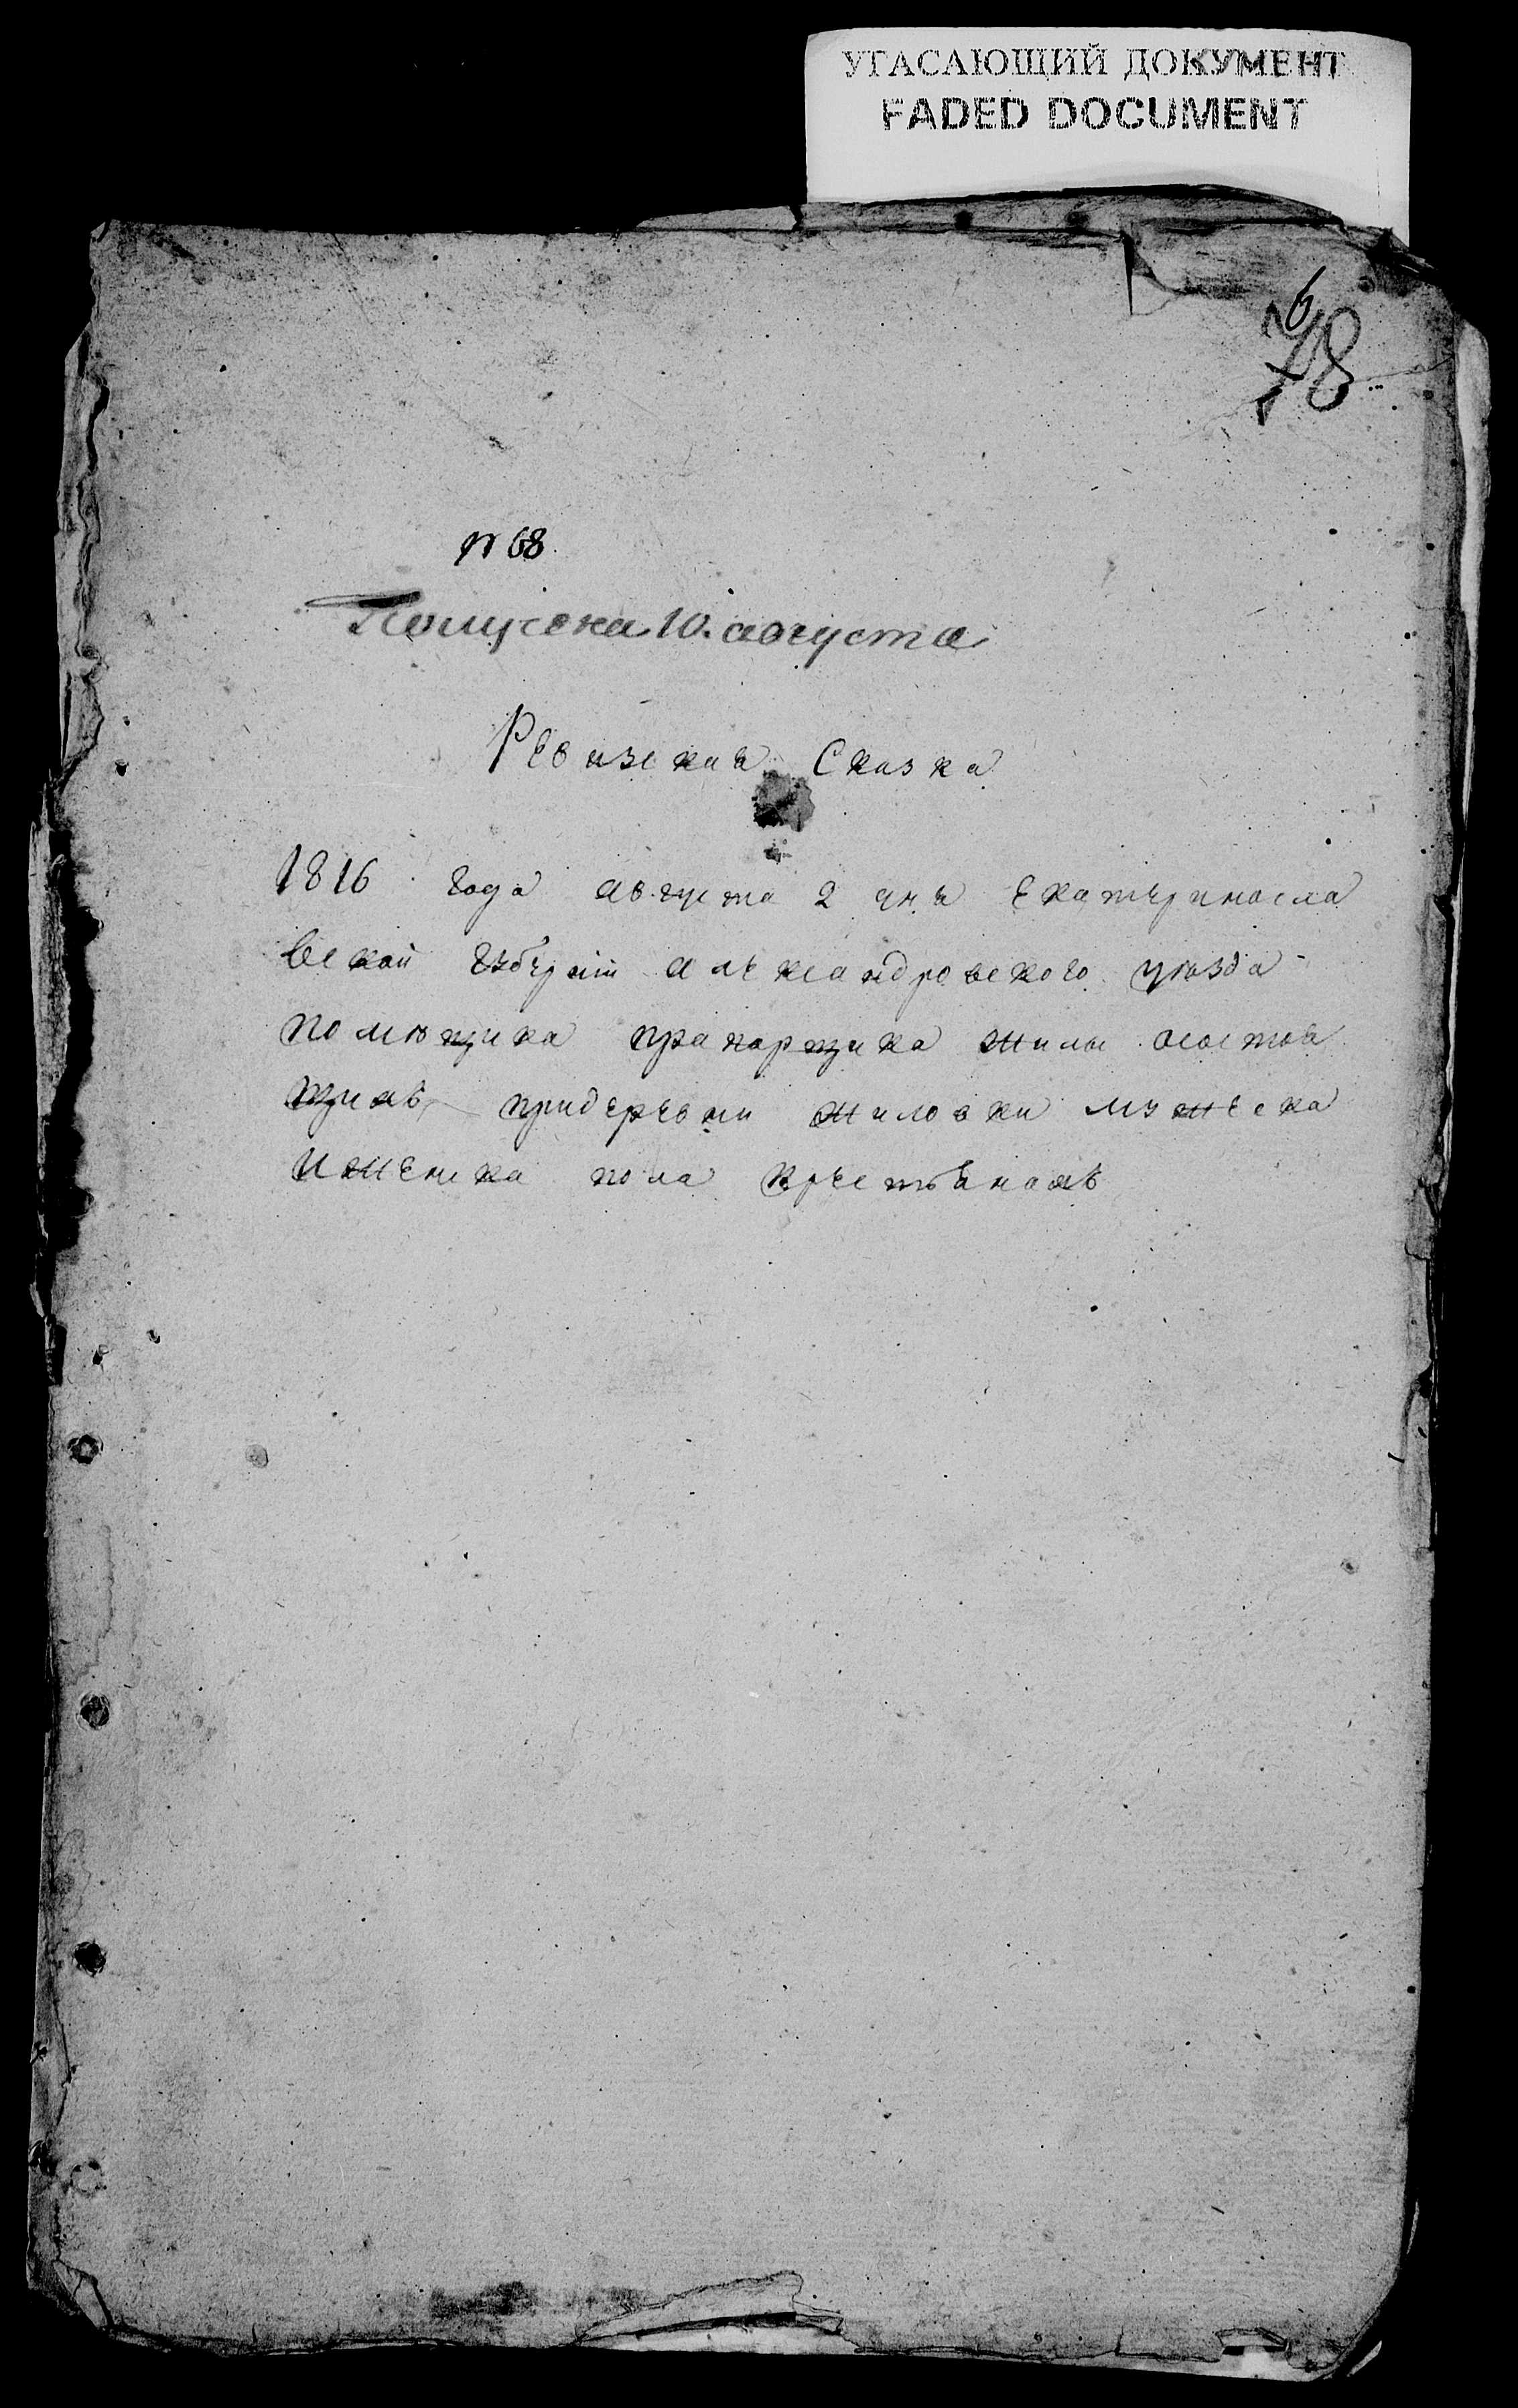 УГАСАЮЩИЙ ДОКУМЕНТ
FADED DOCUMENT
6
78
№ 68.
10. августа
Ревизская Сказка
1816 года августа 2 дня Екатеринасла
вскай губерніи Александровского уезда
помещика прапорщика Жилы состоя
щимъ придеревни Жиловки мужеска
иженска пола крестьянамъ